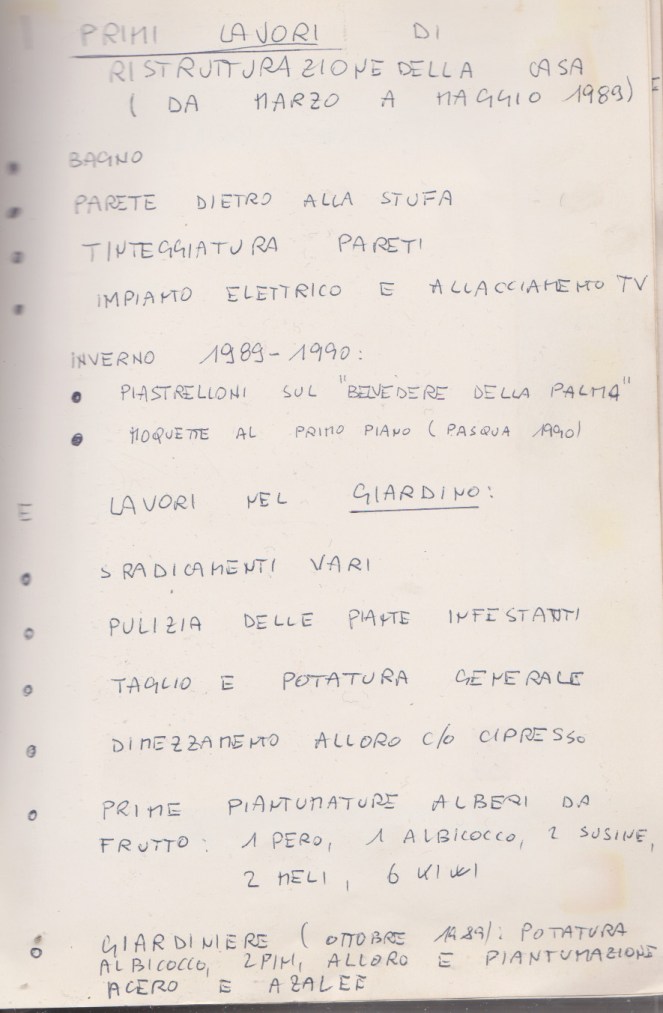 PRIMI LAVORI DI
RISTRUTTURAZIONE DELLA CASA
( DA MARZO A MAGGIO 1989)
BAGNO
PARETE DIETRO ALLA STUFA
TINTEGGIATURA PARETI
IMPIANTO ELETTRICO E ALLACCIAMENTO TV
INVERNO 1989-1990:
PIASTRELLONI SUL "BELVEDERE DELLA PALMA"
MOQUETTE AL PRIMO PIANO (PASQUA 1990)
E LAVORI NEL GIARDINO:
SRADICAMENTI VARI
PULIZIA DELLE PIANTE INFESTANTI
TAGLIO E POTATURA GENERALE
DIMEZZAMENTO ALLORO C/O CIPRESSO
PRIME PIANTUMATURE ALBERI DA
FRUTTO: 1 PERO, 1 ALBICOCCO, 2 SUSINE,
2 MELI, 6 KIWI
GIARDINIERE (OTTOBRE 1989): POTATURA
ALBICOCCO, 2 PINI, ALLORO E PIANTUMAZIONE
ACERO E AZALEE